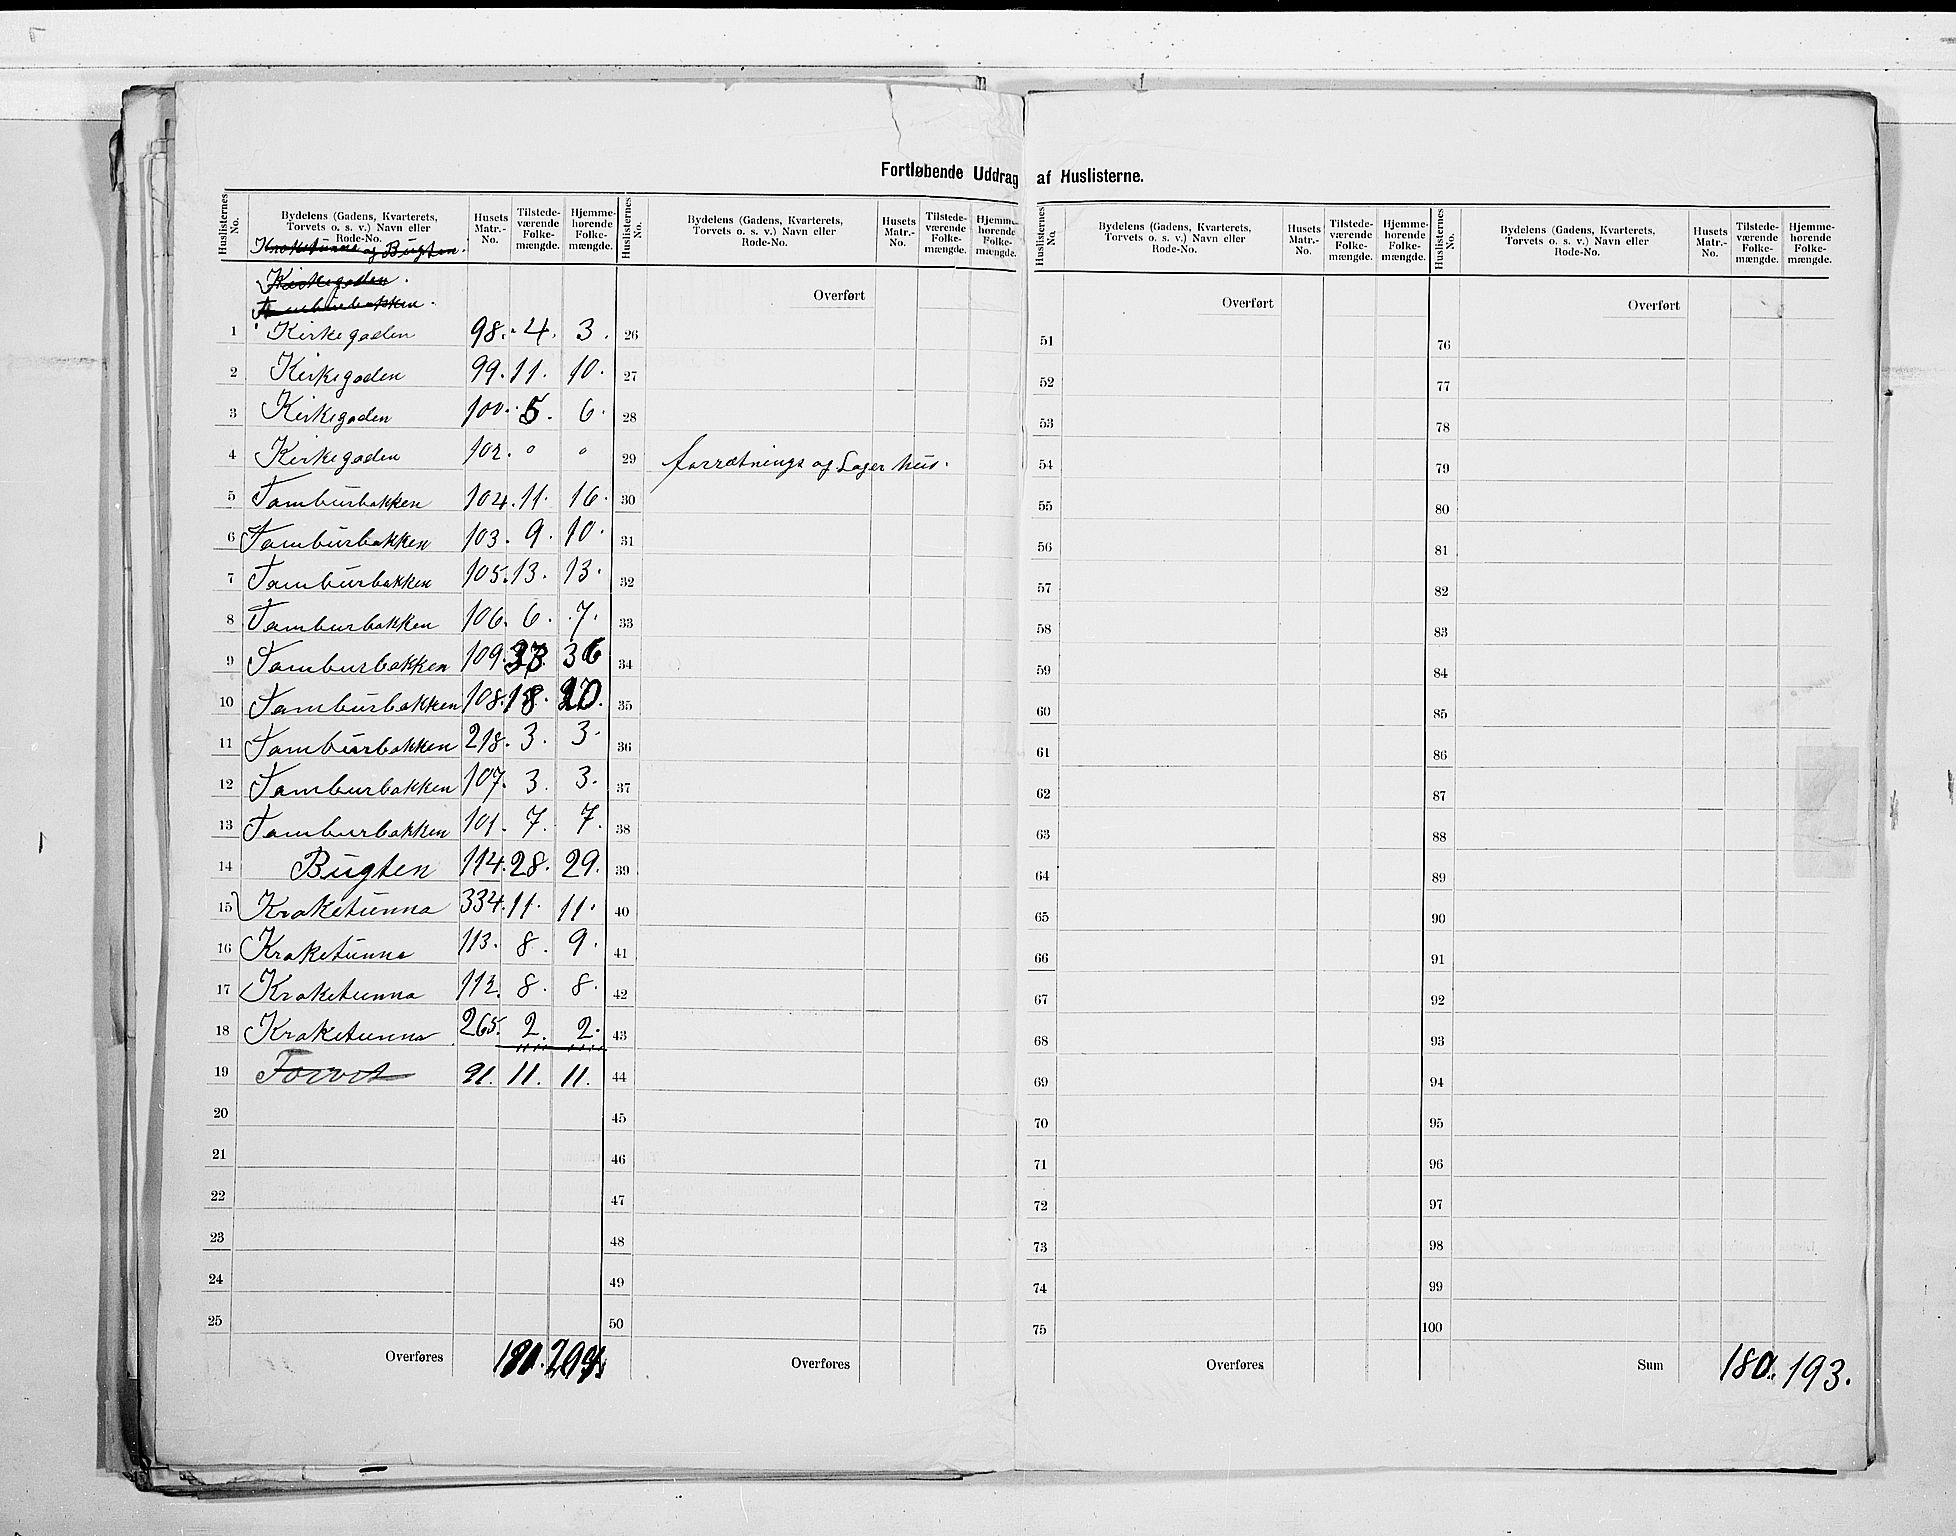 Fortløbende Uddrag af Huslisterne.
Huslisternes No. Bydelens (Gadens, Kvarterets, Torvets o. s. v.) Navn eller Rode-No. Husets Matr.-No. Tilstede-værende Folke-mængde. Hjemme-hørende Folke-mængde. Huslisternes No. Bydelens (Gadens, Kvarterets, Torvets o. s. v.) Navn eller Rode-No. Husets Matr.-No. Tilstede-værende Folke-mængde. Hjemme-hørende Folke-mængde. Huslisternes No. Bydelens (Gadens, Kvarterets, Torvets o. s. v.) Navn eller Rode-No. Husets Matr.-No. Tilstede-værende Folke-mængde. Hjemme-hørende Folke-mængde. Huslisternes No. Bydelens (Gadens, Kvarterets, Torvets o. s. v.) Navn eller Rode-No. Husets Matr.-No. Tilstede-værende Folke-mængde. Hjemme-hørende Folke-mængde.
Kraketunna og Bugten.
Kirkegaden.
Tamburbakken.
Overført Overført Overført
1 Kirkegaden 98. 4. 3. 26 51 76
2 Kirkegaden 99. 11. 10. 27 52 77
3 Kirkegaden 100. 5. 6. 28 53 78
4 Kirkegaden 102. 0 0 29 forretnings og Lager hus. 54 79
5 Tamburbakken 104. 11. 16. 30 55 80
6 Tamburbakken 103. 9. 10. 31 56 81
7 Tamburbakken 105. 13. 13. 32 57 82
8 Tamburbakken 106. 6. 7. 33 58 83
9 Tamburbakken 109. 36 34 59 84
10 Tamburbakken 108. 18. 35 60 85
11 Tamburbakken 218. 3. 3. 36 61 86
12 Tamburbakken 107. 3. 3. 37 62 87
13 Tamburbakken 101. 7. 7. 38 63 88
14 Bugten 114. 28. 29. 39 64 89
15 Kraketunna 334. 11. 11. 40 65 90
16 Kraketunna 113. 8. 9. 41 66 91
17 Kraketunna 112. 8. 8. 42 67 92
18 Kraketunna 265. 2. 2. 43 68 93
19 Torvet 91. 11. 11. 44 69 94
20 45 70 95
21 46 71 96
22 47 72 97
23 48 73 98
24 49 74 99
25 50 75 100
Overføres Overføres Overføres Sum 180. 193.